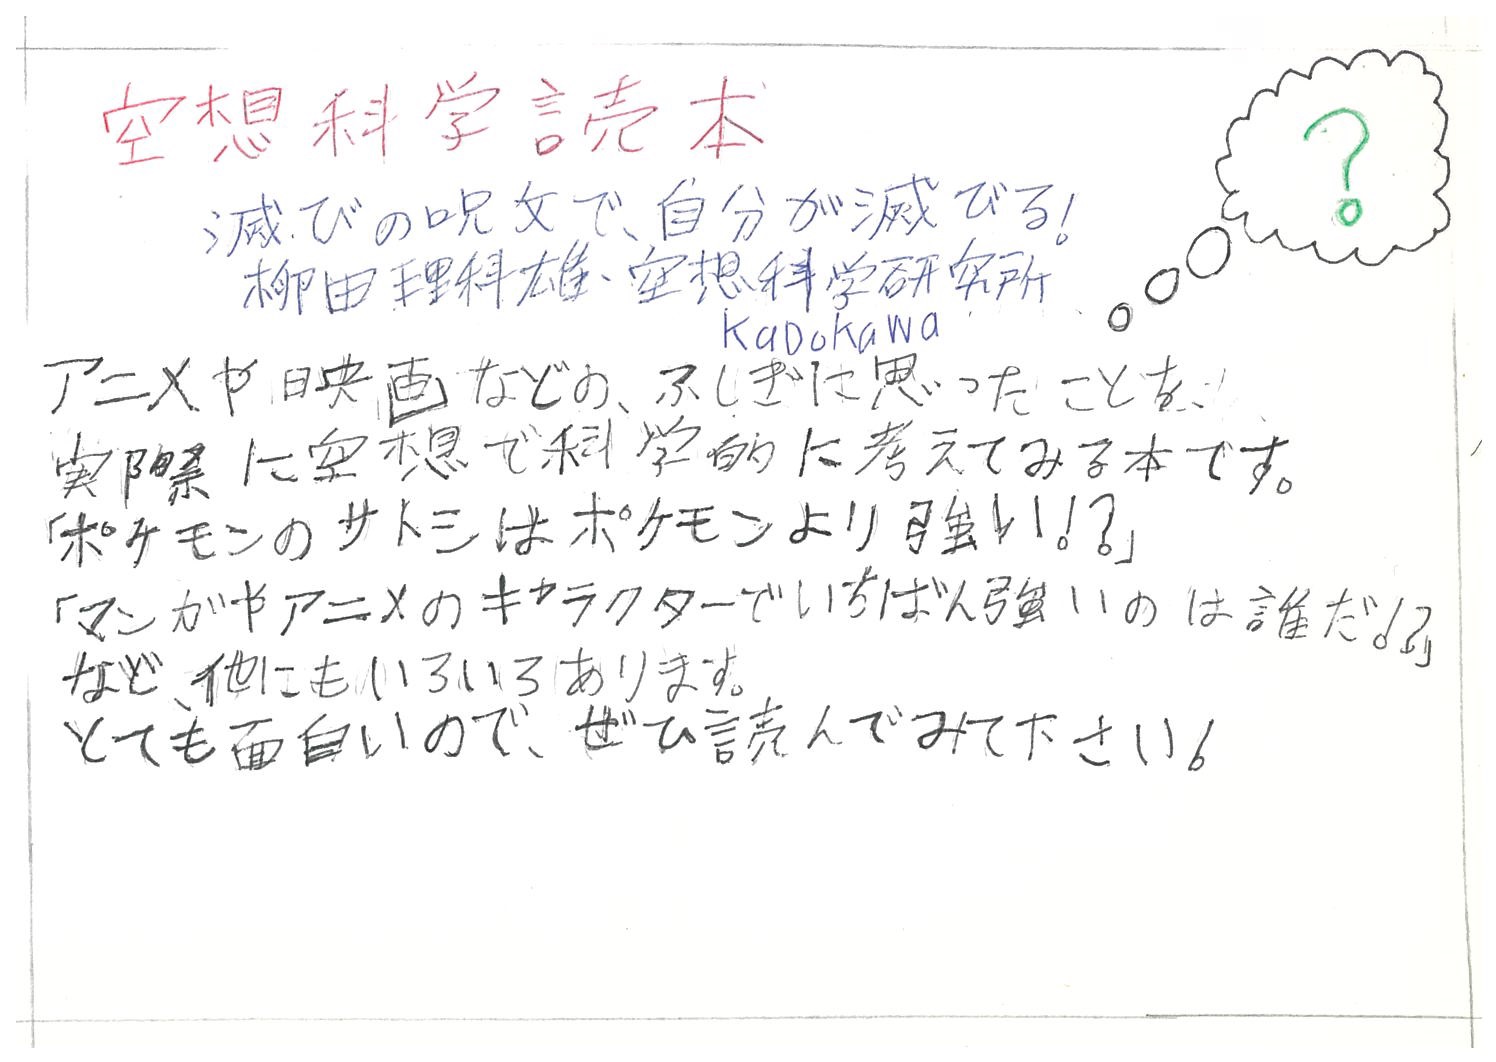 空想科学読本
滅びの呪文で、自分が滅びる!
柳田理科雄・空想科学研究所
KaDoKaWa
?
アニメや映画などの、ふしぎに思ったことを、
実際に空想で科学的に考えてみる本です。
「ポケモンのサトシはポケモンより強い!?」
「マンガやアニメのキャラクターでいちばん強いのは誰だ!?」
など、他にもいろいろあります。
とても面白いので、ぜひ読んでみて下さい!